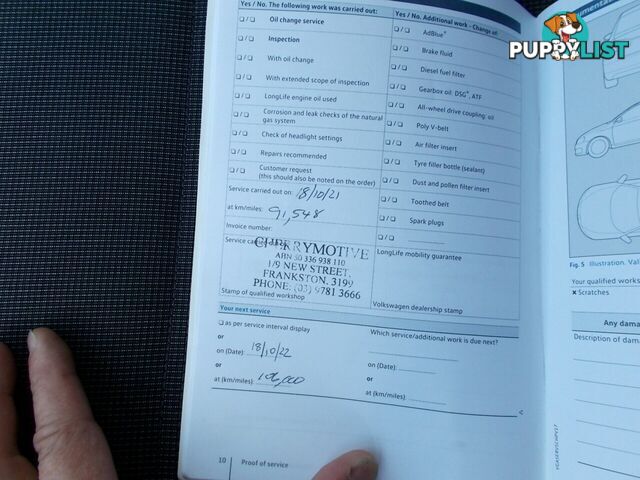 PUPPYLIST
Yes / No. The following work was carried out:
☐/☐ Oil change service
☐/☐ Inspection
☐/☐ With oil change
☐/☐ With extended scope of inspection
☐/☐ LongLife engine oil used
☐/☐ Corrosion and leak checks of the natural
gas system
☐/☐ Check of headlight settings
☐/☐ Repairs recommended
☐/☐ Customer request
(this should also be noted on the order)
Service carried out on: 18/10/21
at km/miles: 91,548
Invoice number:
Service carried out
CHERRYMOTIVE
ABN 80 336 938 110
1/9 NEW STREET,
FRANKSTON, 3199
PHONE: (03) 9781 3666
Stamp of qualified workshop
Yes / No. Additional work - Change of:
☐/☐ AdBlue®
☐/☐ Brake fluid
☐/☐ Diesel fuel filter
☐/☐ Gearbox oil: DSG®, ATF
☐/☐ All-wheel drive coupling: oil
☐/☐ Poly V-belt
☐/☐ Air filter insert
☐/☐ Tyre filler bottle (sealant)
☐/☐ Dust and pollen filter insert
☐/☐ Toothed belt
☐/☐ Spark plugs
☐/☐
LongLife mobility guarantee
Volkswagen dealership stamp
Your next service
☐ as per service interval display
or
on (Date): 18/10/22
or
at (km/miles): 106,000
Which service/additional work is due next?
on (Date):
or
at (km/miles):
10 Proof of service
Fig. 5 Illustration. Val
Your qualified works
× Scratches
Any dama
Description of dam